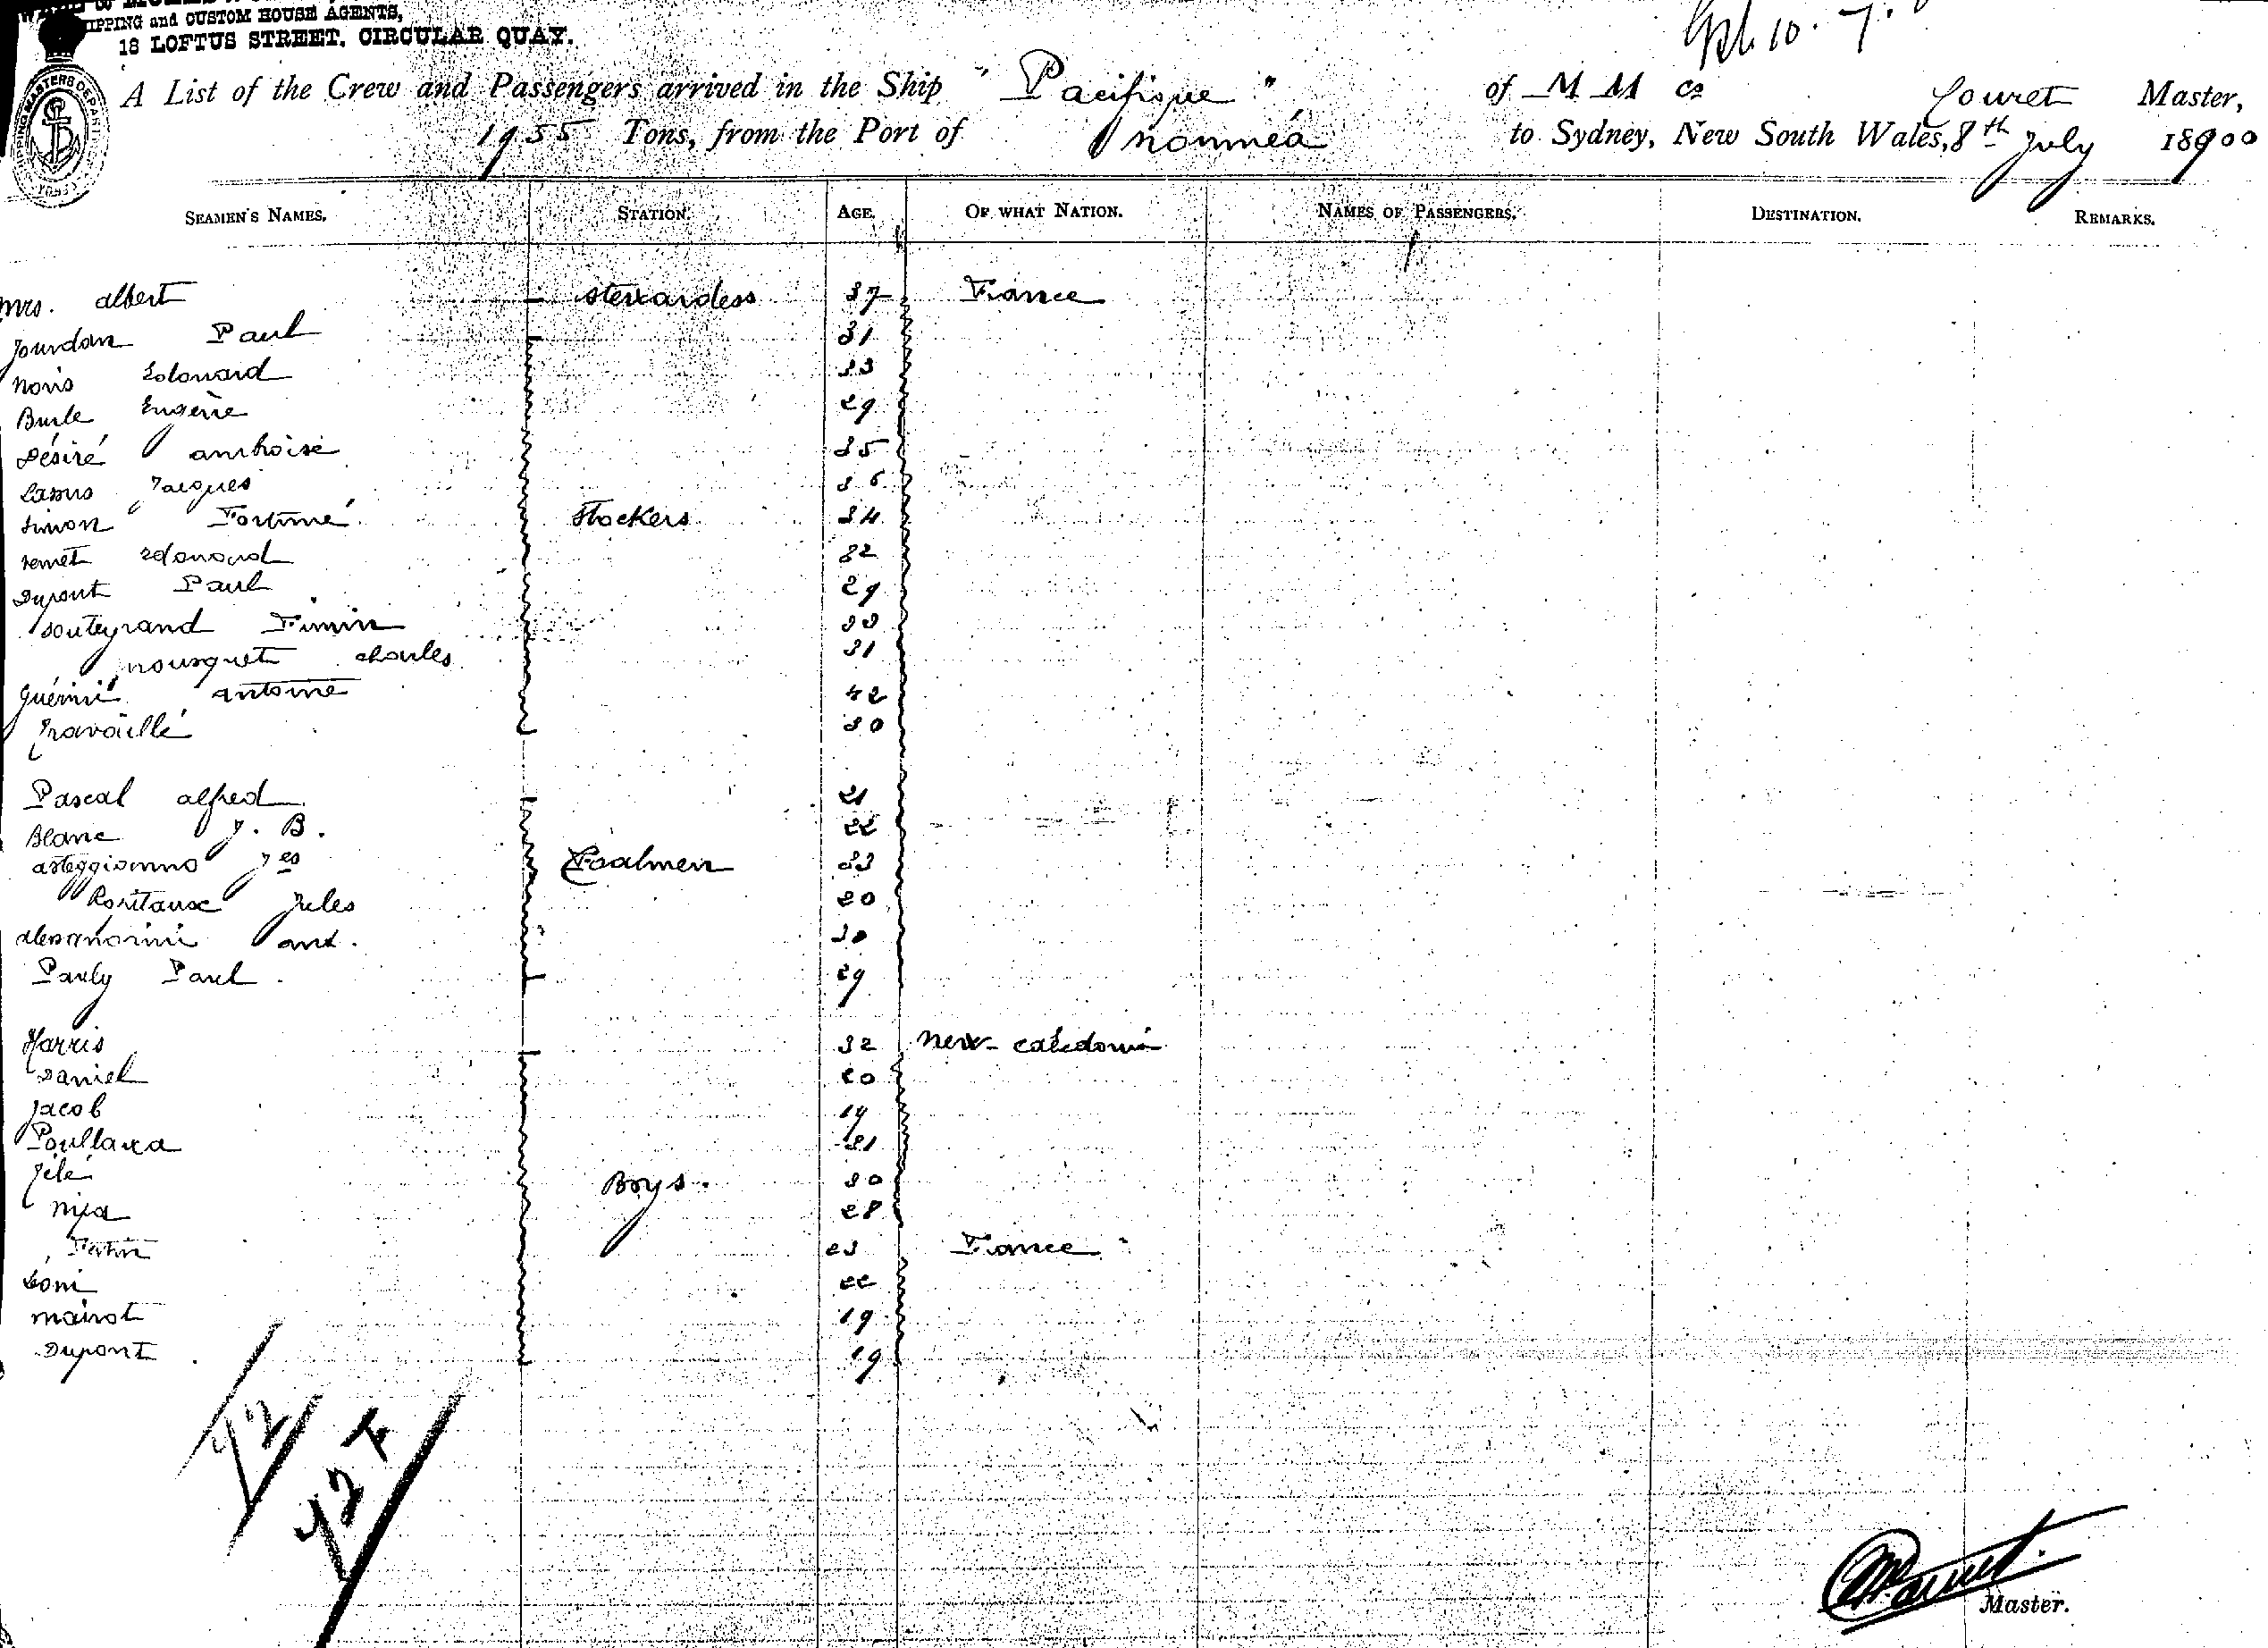 SHIPPING and CUSTOM HOUSE AGENTS,
18 LOFTUS STREET, CIRCULAR QUAY.
A List of the Crew and Passengers arrived in the Ship "Pacifique" of M M Co Master,
1955 Tons, from the Port of Nouméa to Sydney, New South Wales, 8th July 1900
SEAMEN'S NAMES. STATION. AGE. OF WHAT NATION. NAMES OF PASSENGERS. DESTINATION. REMARKS.
Mrs. albert stewardess 37 France
Jourdan Paul 31
Edouard 33
Burle Eugène 29
Désiré ambroise 35
Jacques 36
Simon Fortuné Stockers 34
Edouard 32
Dupont Paul 29
Souteyrand Firmin 33
mousquet charles 31
Guérini antoine 42
Travaillé 30
Pascal alfred 21
Blanc J. B. 22
arteggianno Jes Coalmen 23
Jules 20
alessandrini ant. 30
Pauly Paul 29
Harris 32 New-caledonia
Daniel 20
Jacob 19
21
Boys. 30
28
23 France
22
mairot 19
Dupont 19
Master.